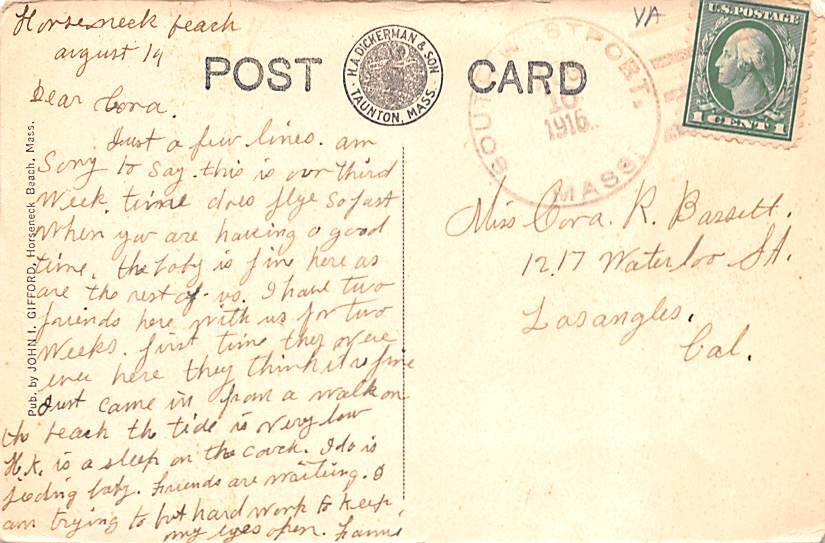 Horseneck beach
august 14
Dear Cora.
Just a few lines. am
Sorry to say this is our third
Week. time does flye so fast
When you are having a good
time. the baby is fine here as
are the rest of us. I have two
friends here with us for two
Weeks. first time they were
ever here they think it is fine
Just came in from a walk on
the beach the tide is very low
H.K. is a sleep on the couch. Ido is
feeding baby. Friends are waiting. I
am trying to but hard work to keep
my eyes open.
POST CARD
H.A. DICKERMAN & SON
TAUNTON, MASS.
Pub. by JOHN I. GIFFORD, Horseneck Beach, Mass.
SOUTH WESTPORT.
1916
MASS.
VA
U.S. POSTAGE
1 CENT 1
Miss Cora. R. Bassett.
1217 Waterloo St.
Losangles.
Cal.